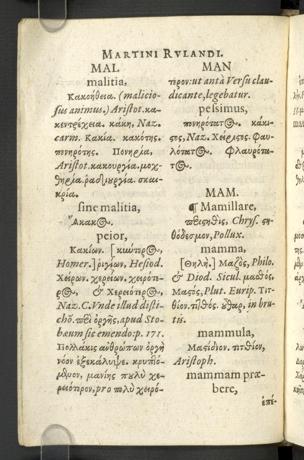 MARTINI RVLANDI.
MAL
malitia,
Κακοήθεια. (malicio-
sus animus.) Aristot. κα-
κεντρέχεια. κάκη, Naz.
carm. Κακία. κακότης.
πονηρότης. Πονηρία,
Aristot. κακουργία. μοχ-
θηρία. ῥᾳδιουργία.
κρία.
sine malitia,
Ἄκακος.
peior,
Κακίων.
Homer.] ῥίγιων, Hesiod.
Χείρων. χερείων, χειρότε-
ρος, & Χερειότερος,
Naz. C. Vnde illud disti-
chō. περὶ ὀργῆς, apud Sto-
bæum sic emendo: p. 171.
Πολλάκις ἀνθρώπων ὀργὴ
νόον ἐξεκάλυψε. κρυπτό-
μενον, μανίης πουλὺ χε-
ρειότερον, pro πολὺ χειρό-
MAN
τερον: ut antà Versu clau-
dicante, legebatur.
pessimus,
πονηρότατος. κάκι-
στος, Naz. Χείριστος. Φαυ-
λότατος. Φλαυρότα-
τος.
MAM.
¶ Mamillare,
Chrys. στη-
θόδεσμον, Pollux.
mamma,
[Θηλὴ.] Μαζὸς, Philo.
& Diod. Sicul. μασθός.
Μαστὸς, Plut. Eurip. Τιτ-
θίον. τιτθός. οὖθαρ, in bru-
tis.
mammula,
Μαστίδιον. τιτθίον,
Aristoph.
mammam præ-
bere,
ἐπέ-